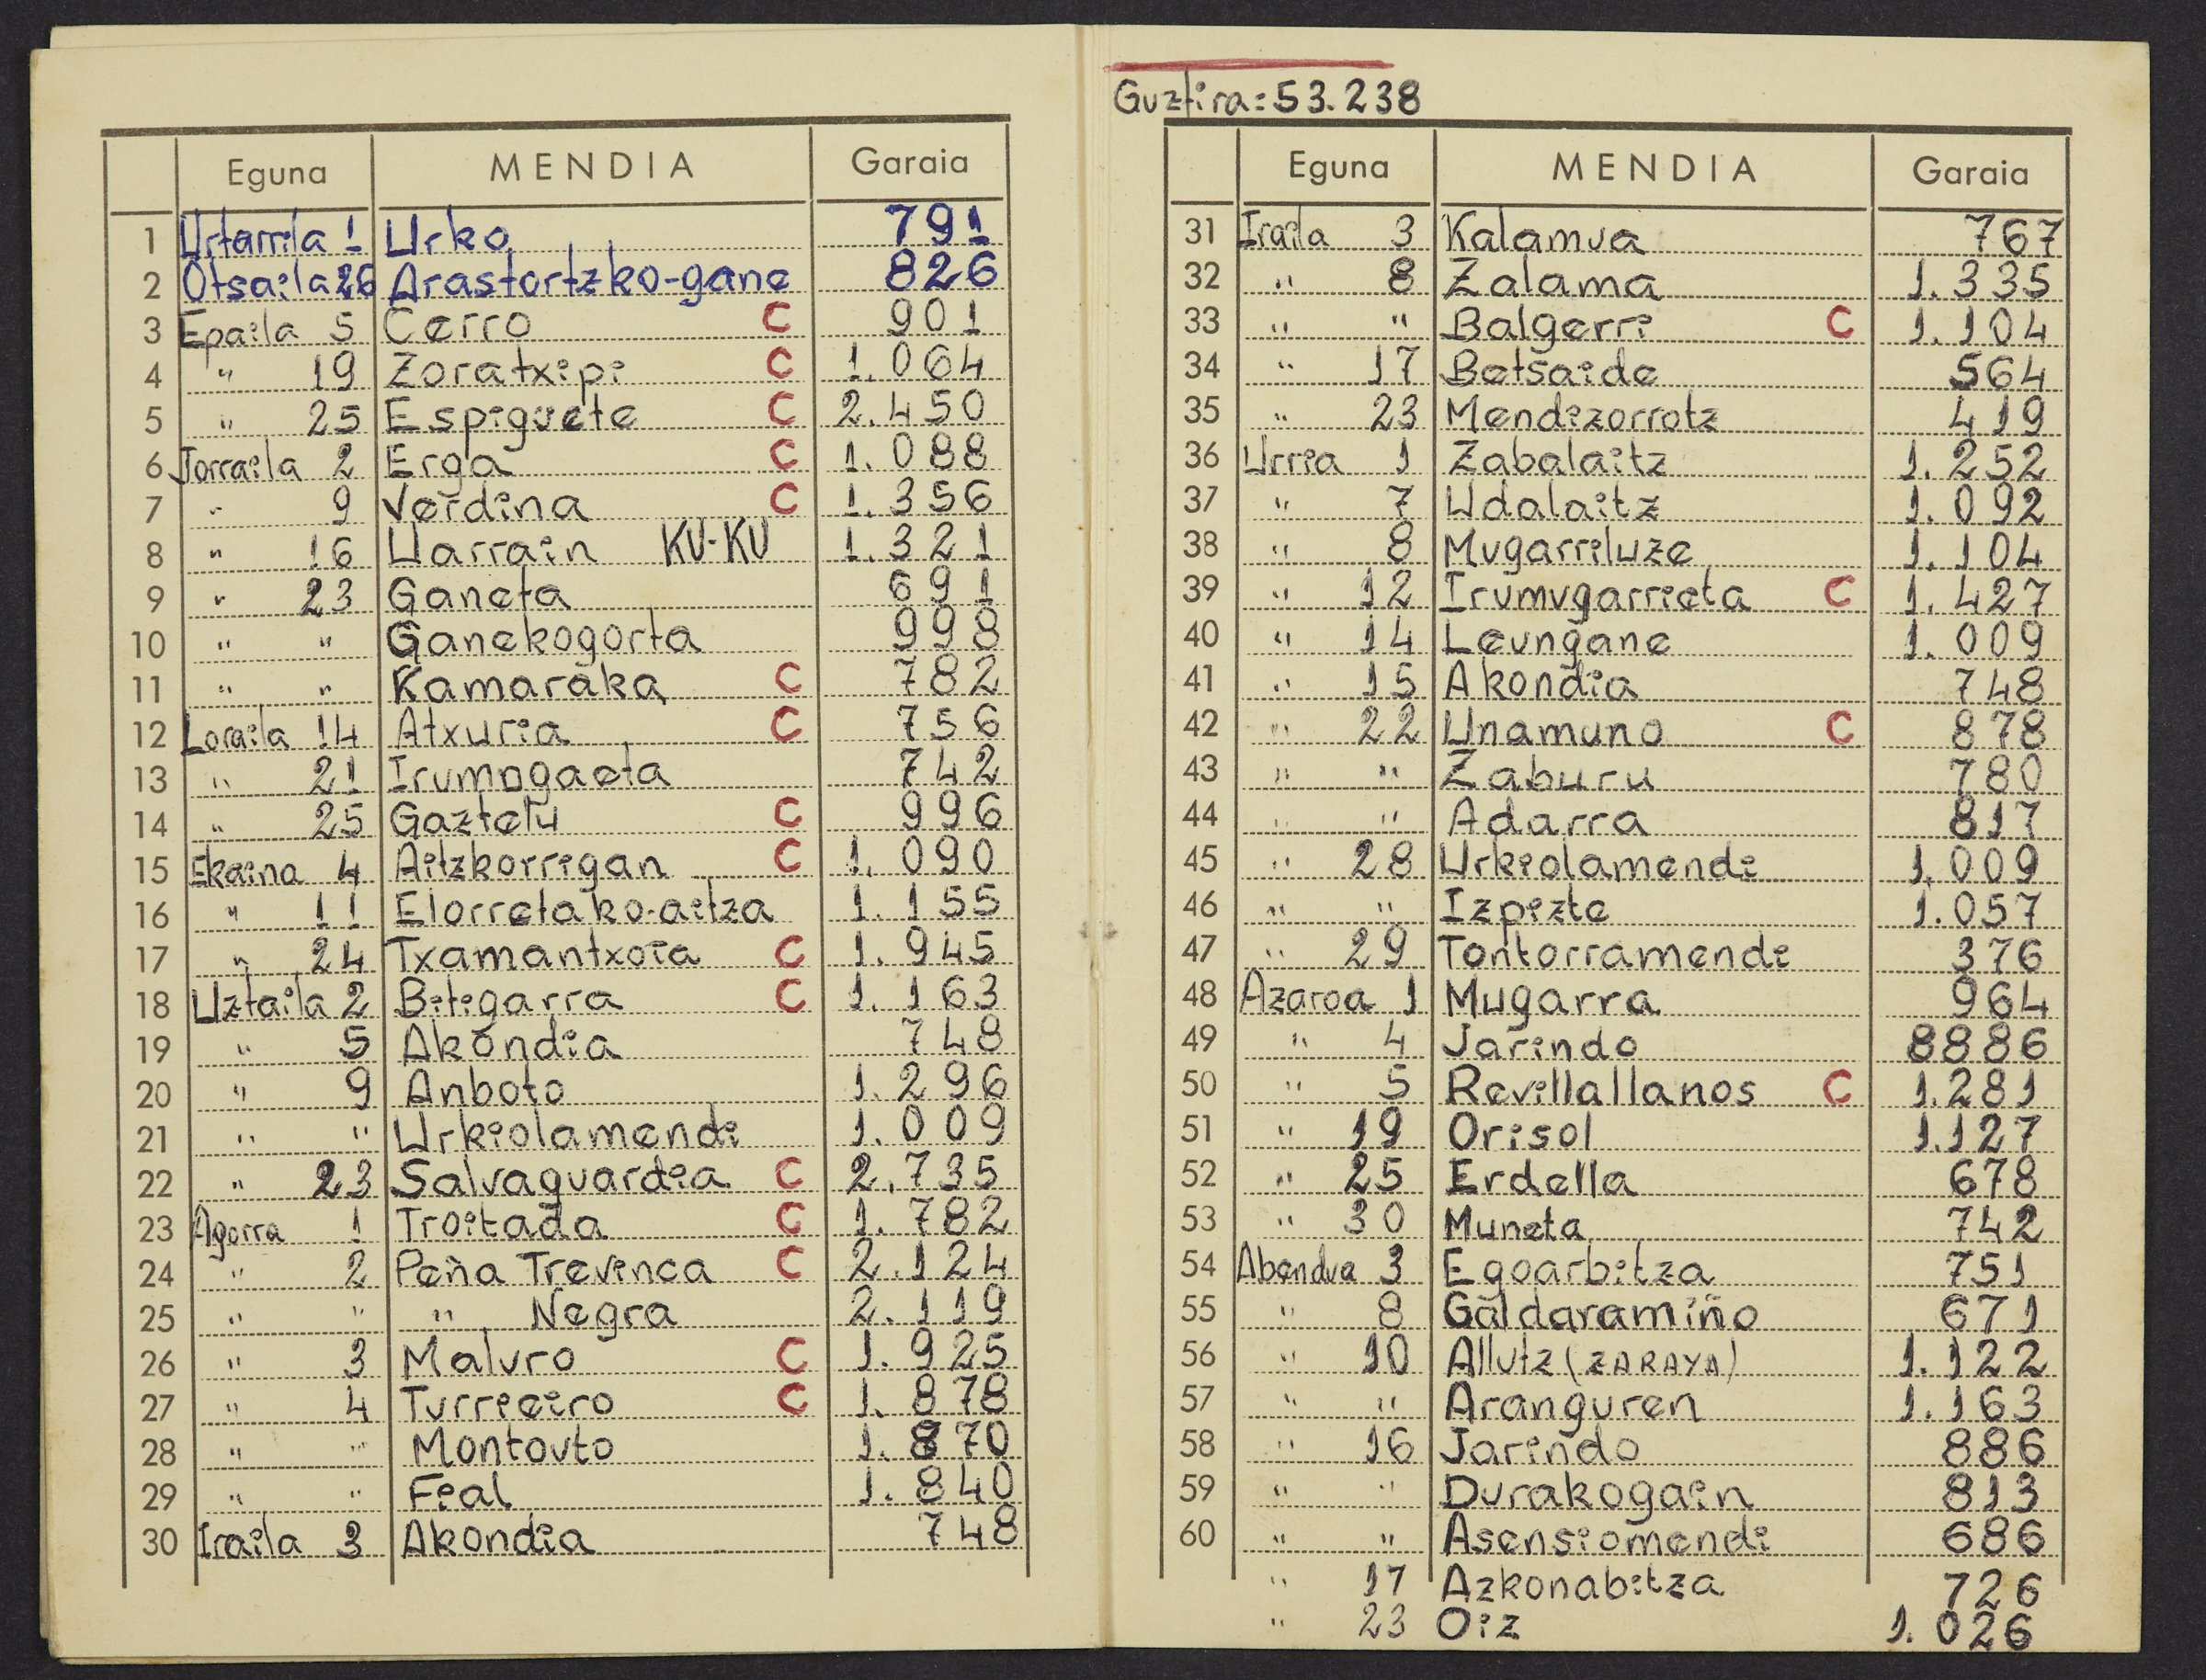 Eguna MENDIA Garaia
1 Urtarrila 1 Urko 791
2 Otsaila 26 Arastortzko-gane 826
3 Epaila 5 Cerro C 901
4 " 19 Zoratxipi C 1.064
5 " 25 Espiguete C 2.450
6 Jorraila 2 Erga C 1.088
7 " 9 Verdina C 1.356
8 " 16 Uarrain KU-KU 1.321
9 " 23 Ganeta 691
10 " " Ganekogorta 998
11 " " Kamaraka C 782
12 Loraila 14 Atxuria C 756
13 " 21 Irumogaeta 742
14 " 25 Gaztelu C 996
15 Ekaina 4 Aitzkorrigan C 1.090
16 " 11 Elorretako-aitza 1.155
17 " 24 Txamantxoia C 1.945
18 Uztaila 2 Bitigarra C 1.163
19 " 5 Akondia 748
20 " 9 Anboto 1.296
21 " " Urkiolamendi 1.009
22 " 23 Salvaguardia C 2.735
23 Agorra 1 Troitada C 1.782
24 " 2 Peña Trevinca C 2.124
25 " " " Negra 2.119
26 " 3 Maluro C 1.925
27 " 4 Turrieiro C 1.878
28 " " Montouto 1.870
29 " " Fial 1.840
30 Iraila 3 Akondia 748
Guztira: 53.238
Eguna MENDIA Garaia
31 Iraila 3 Kalamua 767
32 " 8 Zalama 1.335
33 " " Balgerri C 1.104
34 " 17 Betsaide 564
35 " 23 Mendizorrotz 419
36 Urria 1 Zabalaitz 1.252
37 " 7 Udalaitz 1.092
38 " 8 Mugarriluze 1.104
39 " 12 Irumugarrieta C 1.427
40 " 14 Leungane 1.009
41 " 15 Akondia 748
42 " 22 Unamuno C 878
43 " " Zaburu 780
44 " " Adarra 817
45 " 28 Urkiolamendi 1.009
46 " " Izpizte 1.057
47 " 29 Tontorramendi 376
48 Azaroa 1 Mugarra 964
49 " 4 Jarindo 8886
50 " 5 Revillallanos C 1.281
51 " 19 Orisol 1.127
52 " 25 Erdella 678
53 " 30 Muneta 742
54 Abendua 3 Egoarbitza 751
55 " 8 Galdaramiño 671
56 " 10 Allutz (ZARAYA) 1.122
57 " " Aranguren 1.163
58 " 16 Jarindo 886
59 " " Durakogain 813
60 " " Asensiomendi 686
" 17 Azkonabitza 726
" 23 Oiz 1.026